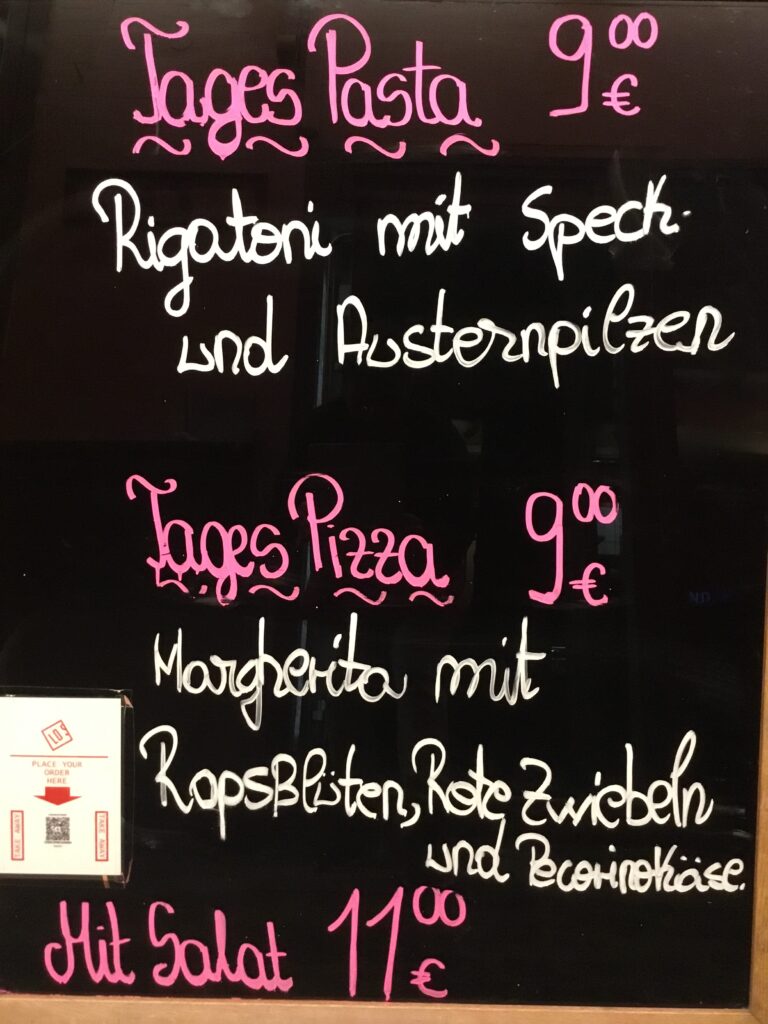 Tages Pasta 9 00 €
Rigatoni mit Speck
und Austernpilzen
Tages Pizza 9 00 €
Margherita mit
Rapsblüten, Rote Zwiebeln
und Pecorinokäse.
PLACE YOUR
ORDER
HERE
TAKE AWAY
TAKE AWAY
Mit Salat 11 00 €